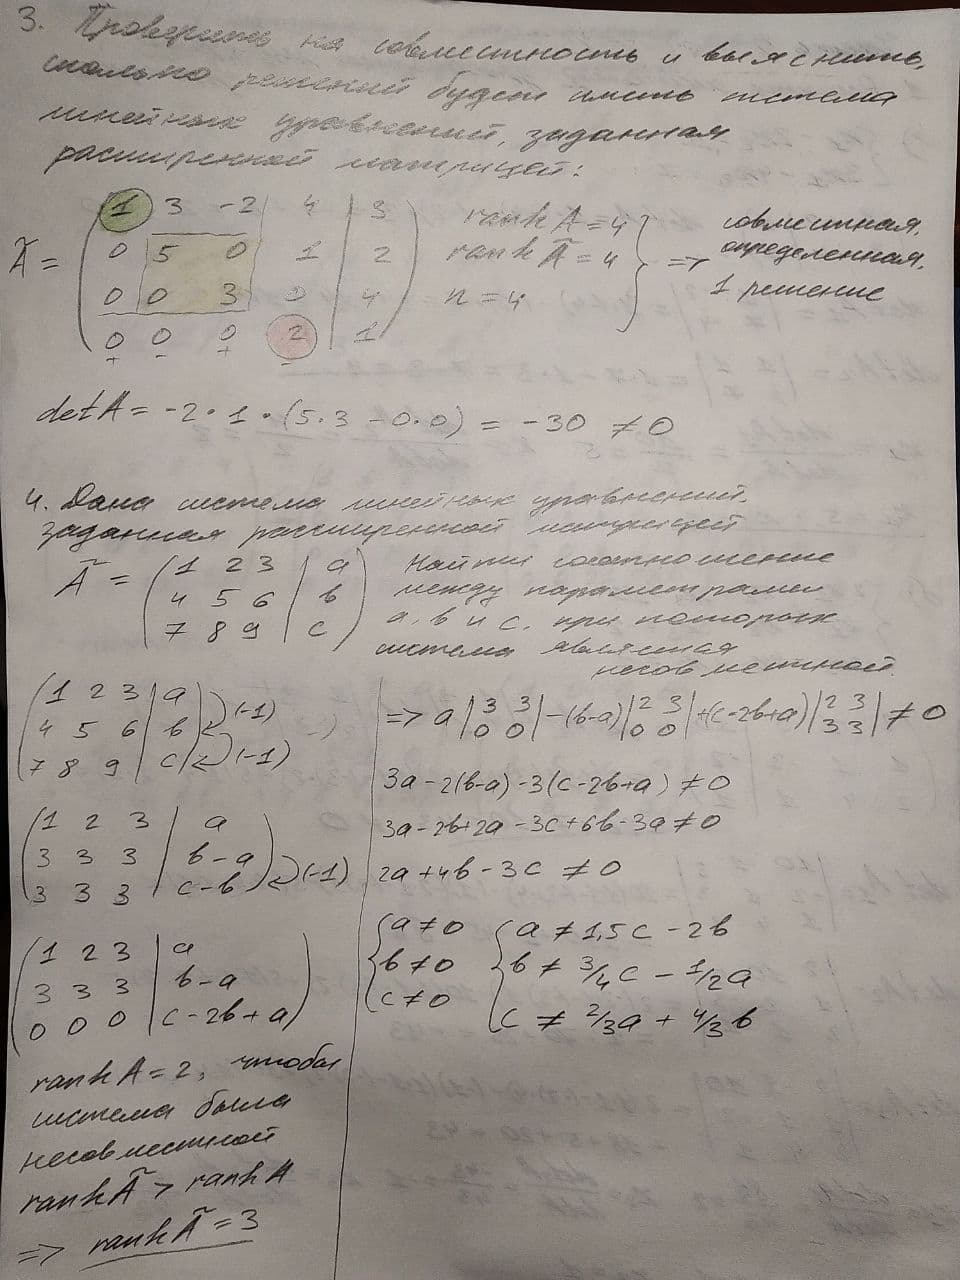 3. Проверить на совместность и выяснить,
сколько решений будет иметь система
линейных уравнений, заданная
расширенной матрицей:
Ã = ( 1 3 -2 4 | 3
0 5 0 1 | 2
0 0 3 0 | 4
0 0 0 2 | 1 )
+ - + -
rank A = 4
rank Ã = 4
n = 4
} => совместная,
определенная,
1 решение
det A = -2 • 1 • (5·3 - 0·0) = -30 ≠ 0
4. Дана система линейных уравнений,
заданная расширенной матрицей
Ã = ( 1 2 3 | a
4 5 6 | b
7 8 9 | c )
Найти соотношение
между параметрами
a, b и c, при которых
система является
несовместной.
( 1 2 3 | a
4 5 6 | b
7 8 9 | c ) (-1)
(-1)
( 1 2 3 | a
3 3 3 | b-a
3 3 3 | c-b ) (-1)
( 1 2 3 | a
3 3 3 | b-a
0 0 0 | c-2b+a )
rank A = 2, чтобы
система была
несовместной
rank Ã > rank A
=> rank Ã = 3
=> a |3 3| - (b-a) |2 3| + (c-2b+a) |2 3| ≠ 0
|0 0| |0 0| |3 3|
3a-2(b-a)-3(c-2b+a) ≠ 0
3a-2b+2a-3c+6b-3a ≠ 0
2a+4b-3c ≠ 0
{ a ≠ 0
b ≠ 0
c ≠ 0
{ a ≠ 1,5c - 2b
b ≠ 3/4c - 1/2a
c ≠ 2/3a + 4/3b